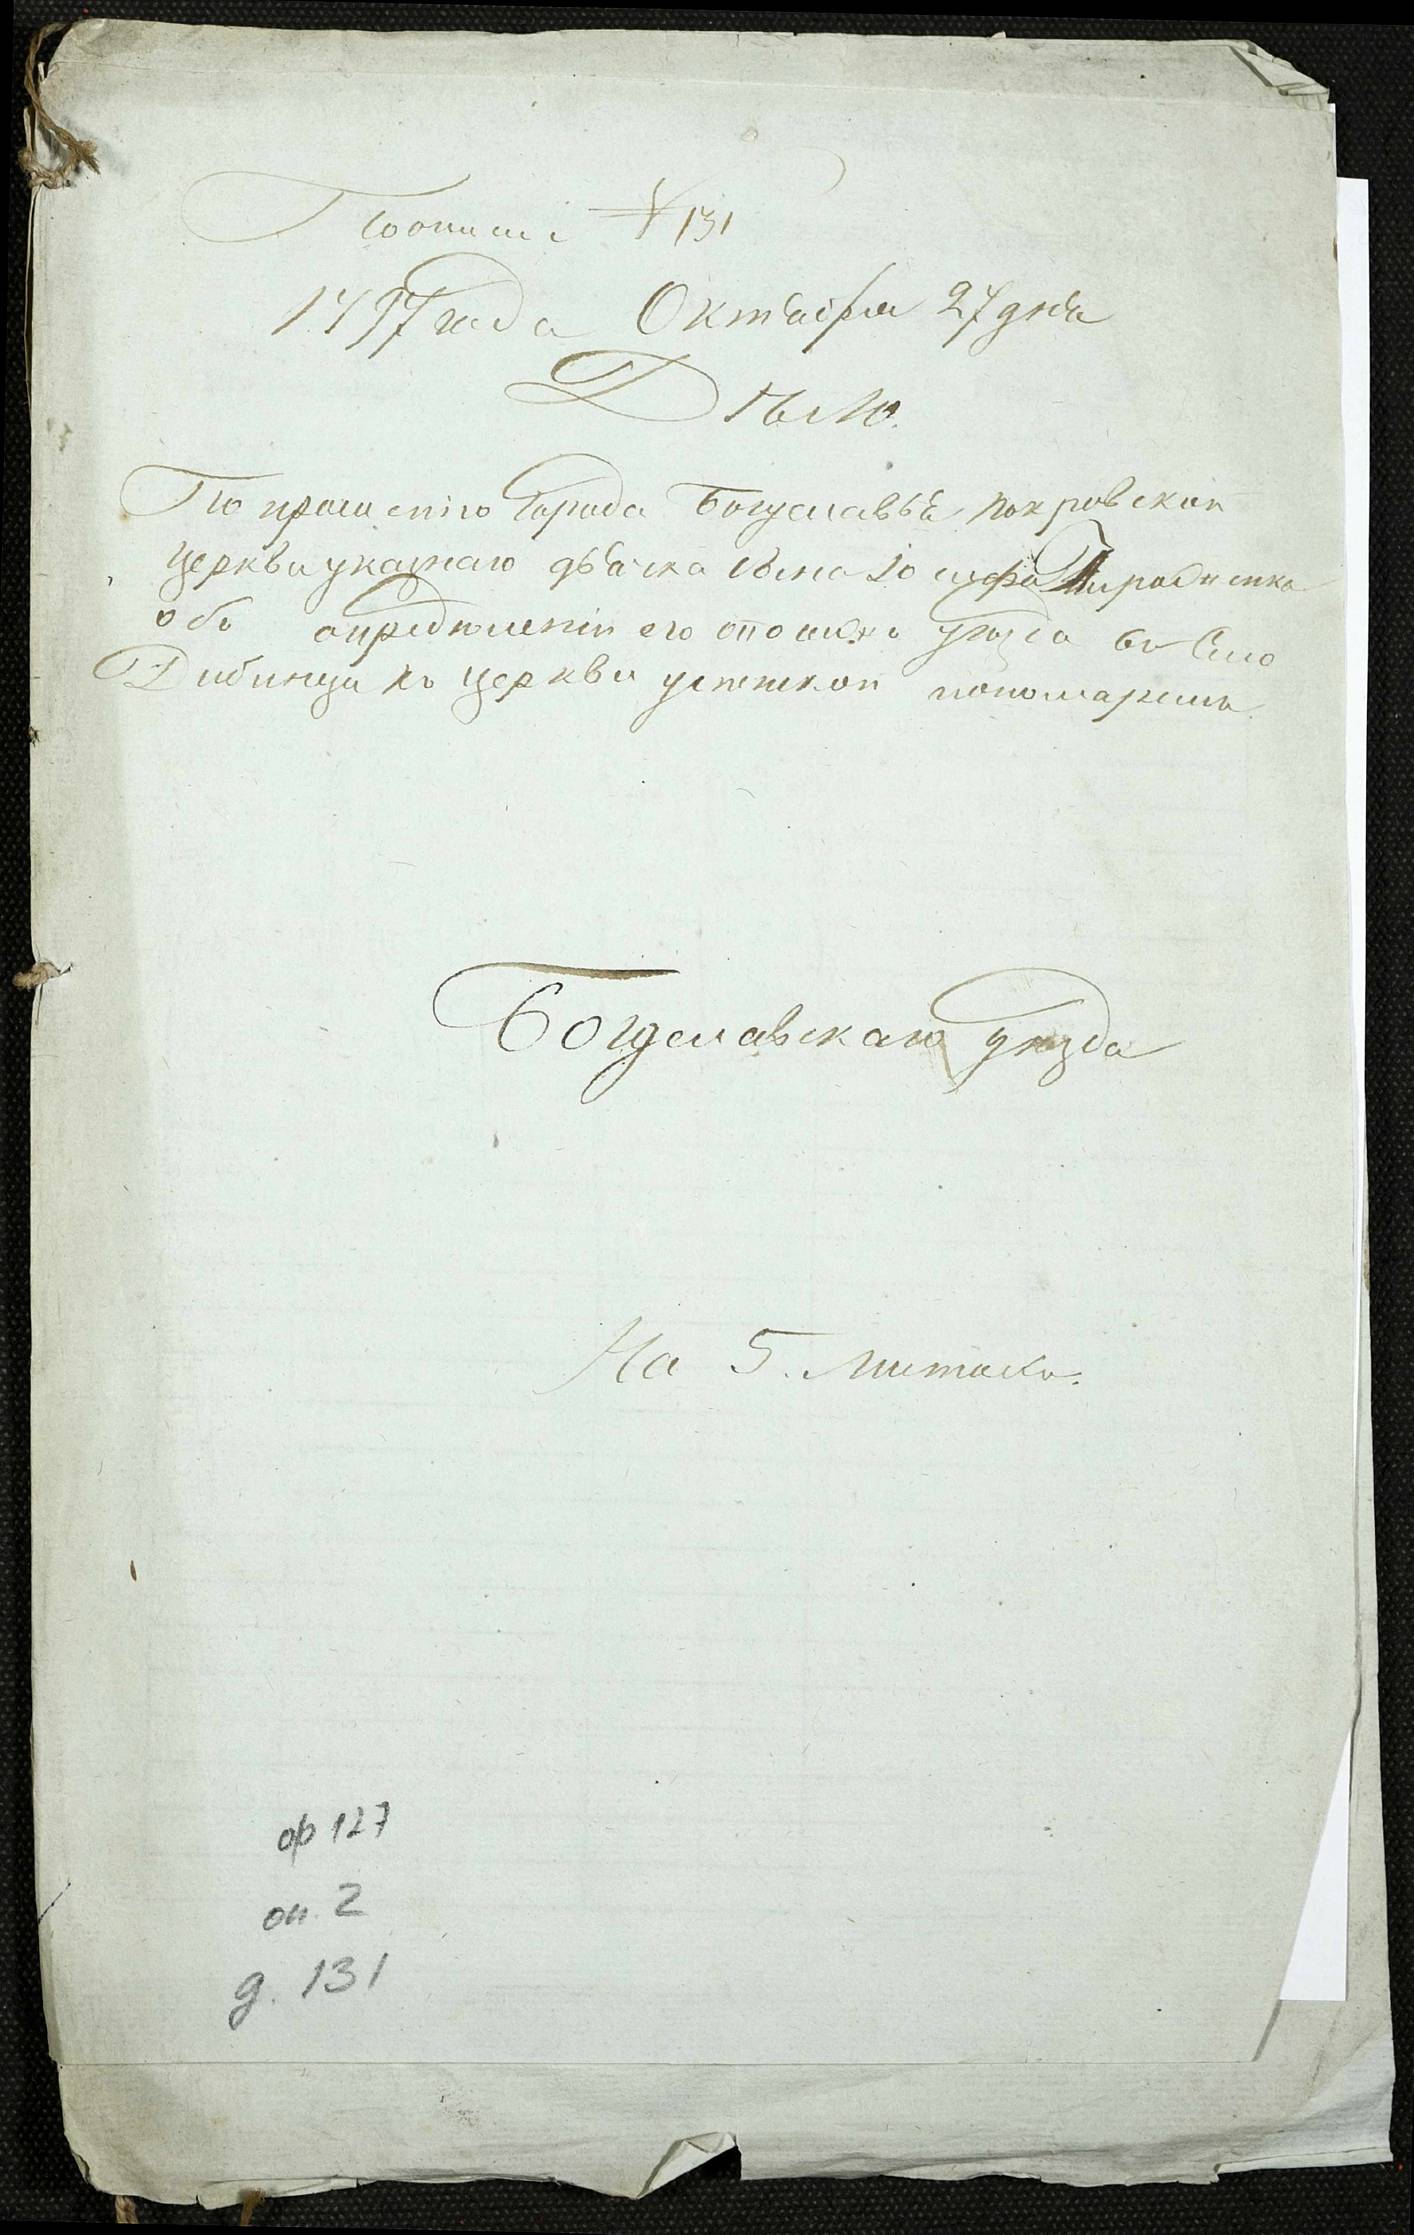 По описи № 131
1797 года Октября 27 дня
Дѣло.
По прошенію города Богуславля покровской
церкви указнаго дьячка сына Іосифа
объ опредѣленіи его тогожъ уѣзда въ Село
Дибинци къ церкви успенской пономаремъ
Богуславскаго уѣзда
На 5. листахъ.
ф 127
оп. 2
д. 131